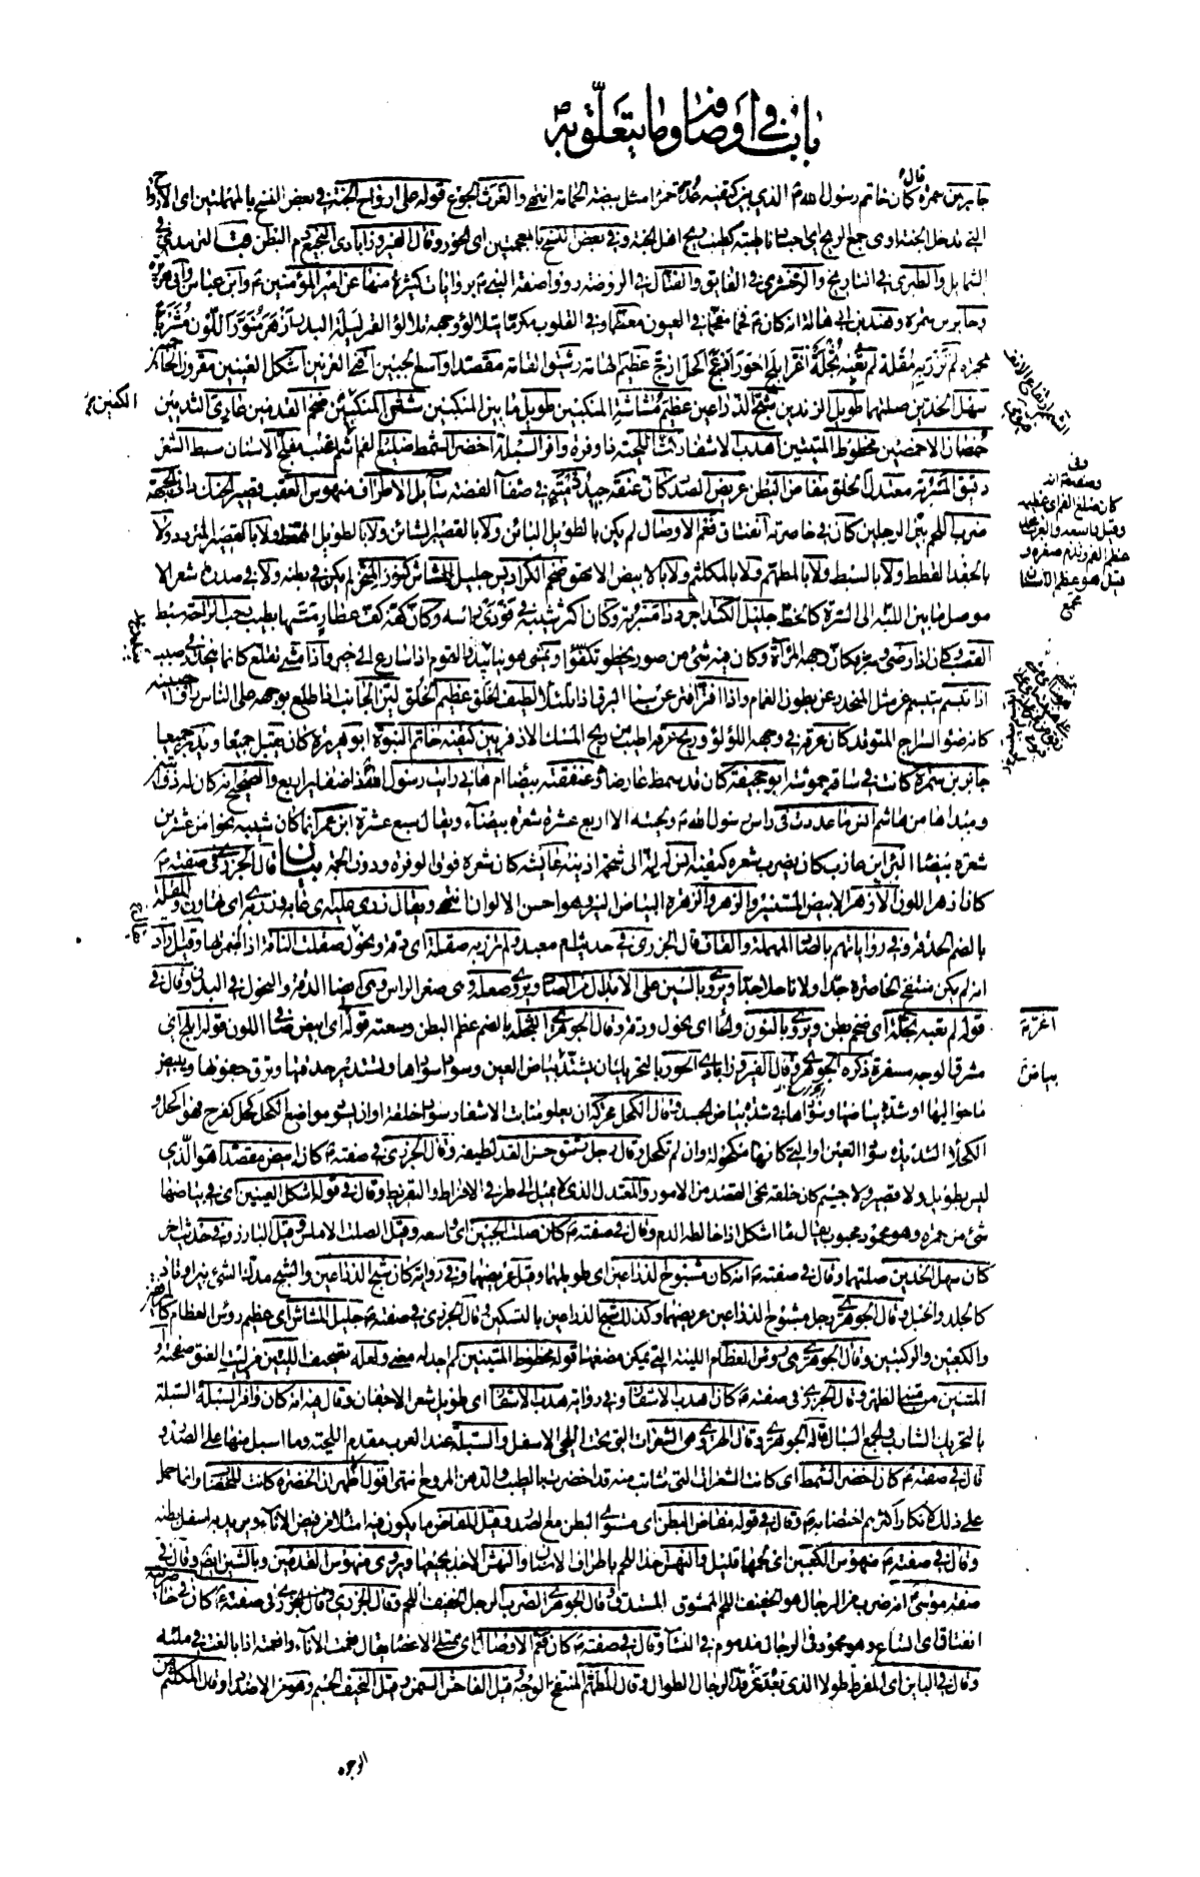 باب في أوصافه وما يتعلق به
جابر بن سمرة قال كان خاتم رسول الله الذي بين كتفيه غدة حمرا مثل بيضة الحمامة والغرث الجوع قوله على ارواح الجنة في بعض النسخ بالمهملتين اى
التي تدخل الجنة او في جمع الريح اهل الجنة وفي بعض النسخ بالمعجمتين اى الخور وقال الفيروزابادى البطن الترمذي في
الشمايل والطبري في التاريخ والزمخشري في الفايق والفتال في الروضة رووا صفة النبي ص بروايات كثيرة منها عن امير المؤمنين ع وابن عباس وأبي هريرة
وجابر بن سمرة وهند بن ابي هالة انه كان ص فخما مفخما في العيون معظما وفي القلوب مكرما يتلالؤ وجهه تلالؤ القمر ليلة البدر ازهر منور اللون مشربا
بحمرة لم تزر به مقلة لم تعبه ثجلة اغر ابلج احور ادعج اكحل ازج عظيم الهامة رشيق القامة مقصدا واسع الجبين اقنى العرنين اشكل العينين مقرون الحاجبين
سهل الخدين صلتهما طويل الزندين شبح الذراعين عظيم مشاشة المنكبين طويل ما بين المنكبين شثن الكفين ضخم القدمين عاري الثديين
خمصان الاخمصين مخطوط المتيتين اهدب الاشفار كث اللحية ذا وفرة وافر السبلة اخضر الشمط ضليع الفم اشم اشنب مفلج الاسنان سبط الشعر
دقيق المسربة معتدل الخلق مفاض البطن عريض الصدر كان عنقه جيد دمية في صفاء الفضة سائل الاطراف منهوس العقب قصير الحنك داني الجبهة
ضرب اللحم بين الرجلين كان في خاصرته انفتاق فعم الاوصال لم يكن بالطويل البائن ولا بالقصير الشائن ولا بالطويل الممغط ولا بالقصير المتردد ولا
بالجعد القطط ولا بالسبط ولا بالمطهم ولا بالمكلثم ولا بالابيض الامهق ضخم الكراديس جليل المشاش لم يكن في بطنه ولا في صدره شعر الا
موصل ما بين اللبة الى السرة كالخط جليل الكتد اجرد ذا مسربة وكان اكثر شيبه في فودي راسه وكان كفه كف عطار مسها بطيب رحب الراحة سبط
القصب وكان اذا رضي وسر فكان وجهه المرآة وكان فيه شيء من صور يخطو تكفؤا ويمشي هونا يبدأ القوم اذا سارع الى خير واذا مشى تقلع كانما ينحدر في صبب
اذا تبسم يتبسم عن مثل المنحدر عن بطون الغمام واذا افتر افتر عن سنا البرق اذا تلألأ لطيف الخلق عظيم الخلق لين الجانب اذا طلع بوجهه على الناس رأوا جبينه
كانه ضوء السراج المتوقد كان عرقه في وجهه اللؤلؤ وريح عرقه اطيب من ريح المسك الاذفر بين كتفيه خاتم النبوة ابو هريرة كان يقبل جميعا ويدبر جميعا
جابر بن سمرة كانت في ساقه حموشة ابو جحيفة كان قد سمط عارضاه وعنفقته بيضاء ام هاني رايت رسول الله ذا ضفاير اربع والصحيح انه كان له ذوابتين
ومبداها من هاشم انس ما عددت في راس رسول الله ولحيته الا اربع عشرة شعرة بيضاء ويقال سبع عشرة ابن عمر انما كان شيبه نحوا من عشرين
شعرة بيضاء البراء بن عازب كان يضرب شعره كتفيه انس له لمة الى شحمة اذنيه عائشة كان شعره فوق الوفرة ودون الجمة بيان قال الجزري في صفته ص
كان ازهر اللون الازهر الابيض المستنير والزهر والزهرة البياض النير وهو احسن الالوان انتهى ويقال زرى عليه اى عابه وزرى به اى تهاون والمقلة
بالضم الحدقة وفي رواياتهم بالصاد المهملة والقاف قال الجزري في حديث ام معبد ولم تزر به صقلة اى دقة ونحول صقلت الناقة اذا اضمرتها وقيل اراد
انه لم يكن منتفخ الخاصرة جدا ولا ناحلا جدا ويروى بالسين على الابدال من الصاد ويروى صعلة وهي صغر الراس وهي ايضا الدقة والنحول في البدن وقال في
قوله لم تعبه ثجلة اى ضخم بطن ويروى بالنون والحاء اى نحول ودقة وقال الجوهري الثجلة بالضم عظم البطن وسعته قوله اى ابيض صافي اللون قوله ابلج اى
مشرق الوجه مسفرة ذكره الجوهري وقال الفيروزابادي الحور بالتحريك ان يشتد بياض العين وسواد سوادها وتستدير حدقتها وترق جفونها ويبيض
ما حواليها او شدة بياضها وسوادها في شدة بياض الجسد وقال الكحل محركة ان يعلو منابت الاشفار سواد خلقة او ان يسود مواضع الكحل كحل كفرح فهو اكحل و
الكحلاء الشديدة سواد العين او التي كانها مكحولة وان لم تكحل وقال رجل رشيق حسن القد لطيفه وقال الجزري في صفته ص كان ابيض مقصدا هو الذي
ليس بطويل ولا قصير ولا جسيم كان خلقه نحي القصد من الامور والمعتدل الذي لا يميل الى طرفي الافراط والتفريط وقال في قوله اشكل العينين اى في بياضها
شيء من حمرة وهو محمود محبوب يقال ماء اشكل اذا خالطه الدم وقال في صفته ص كان صلت الجبين اى واسعه وقيل الصلت الاملس وقيل البارز وفي حديث اخر
كان سهل الخدين صلتهما وقال في صفته ص انه كان مشبوح الذراعين اى طويلهما وقيل عريضهما وفي رواية كان شبح الذراعين والشبح مدك الشيء بين اوتاد
كالجلد والحبل وقال الجوهري رجل مشبوح الذراعين عريضهما وكذلك شبح الذراعين بالتسكين وقال الجزري في صفته ص جليل المشاش اى عظيم رؤس العظام كالمرفقين
والكعبين والركبتين وقال الجوهري هي رؤس العظام اللينة التي يمكن مضغها قوله مخطوط المتيتين لم اجد له معنى ولعله تصحيف الليتين من ليت العنق صفحته و
المتنين من متني الظهر وقال الجزري في صفته ص كان اهدب الاشفار وفي رواية هدب الاشفار اى طويل شعر الاجفان وقال فيه انه كان وافر السبلة السبلة
بالتحريك الشارب والجمع السبال قاله الجوهري وقال الهروي هي الشعرات التي تحت اللحي الاسفل والسبلة عند العرب مقدم اللحية وما اسبل منها على الصدر و
قال في صفته ص كان اخضر الشمط اى كانت الشعرات التي شابت منه قد اخضرت بالطيب والدهن المروح انتهى اقول الظهر ان الخضرة كانت للخضاب وانما حمله
على ذلك لانكار اكثرهم اختضابه ص وقال في قوله مفاض البطن اى مستوى البطن مع الصدر وقيل المفاض ما يكون فيه امتلاء من فيض الاناء ويريد به اسفل بطنه
وقال في صفته ص منهوس الكعبين اى لحمهما قليل والنهس اخذ اللحم باطراف الاسنان والنهش الاخذ بجميعها ويروى منهوس القدمين وبالشين ايضا وقال في
صفة موسى انه ضرب من الرجال هو الخفيف اللحم الممشوق المستدق وقال الجوهري الضرب الرجل الخفيف اللحم وقال الجزري في صفته ص كان في خاصرتيه
انفتاق اى اتساع وهو محمود في الرجال مذموم في النساء وقال في صفته ص كان فعم الاوصال اى ممتلى الاعضاء يقال فعمت الاناء وافعمته اذا بالغت في ملئه
وقال في البائن اى المفرط طولا الذي بعد عن قد الرجال الطوال وقال المطهم المنتفخ الوجه وقيل الفاحش السمن وقيل النحيف الجسم وهو من الاضداد وقال المكلثم من
الوجوه
الكفين
وفي
وصفته انه
كان ضليع الفم اى عظيمه
وقيل واسعه والعرب تمدح
عظم الفم وتذم صغره و
قيل هو عظيم الاسنان
اغر
بياض